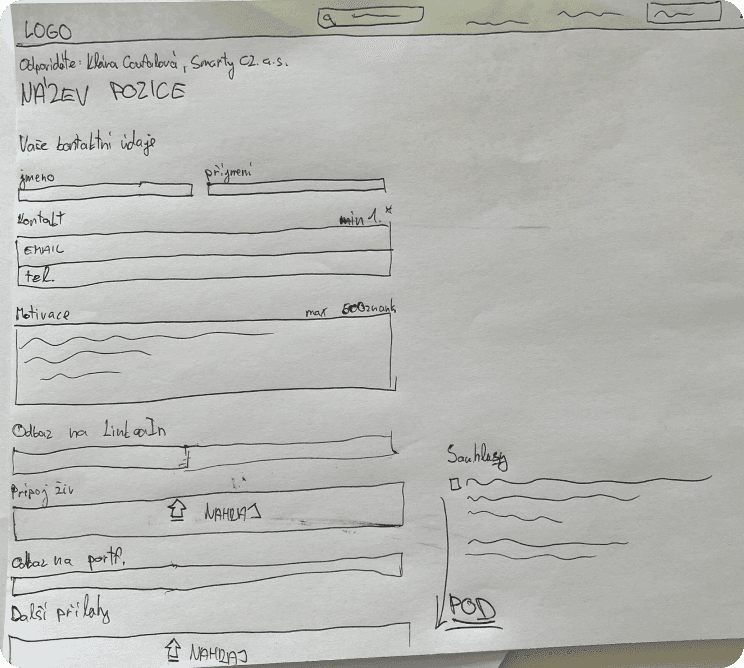 LOGO
Odpovídáte: Klára Coufalová, Smarty CZ a.s.
NÁZEV POZICE
Vaše kontaktní údaje
jméno příjmení
Kontakt min 1.*
EMAIL
tel.
Motivace max 500znaků
Odkaz na LinkedIn
Připoj živ
NAHRAJ
Odkaz na portf.
Další přílohy
NAHRAJ
Souhlasy
POD